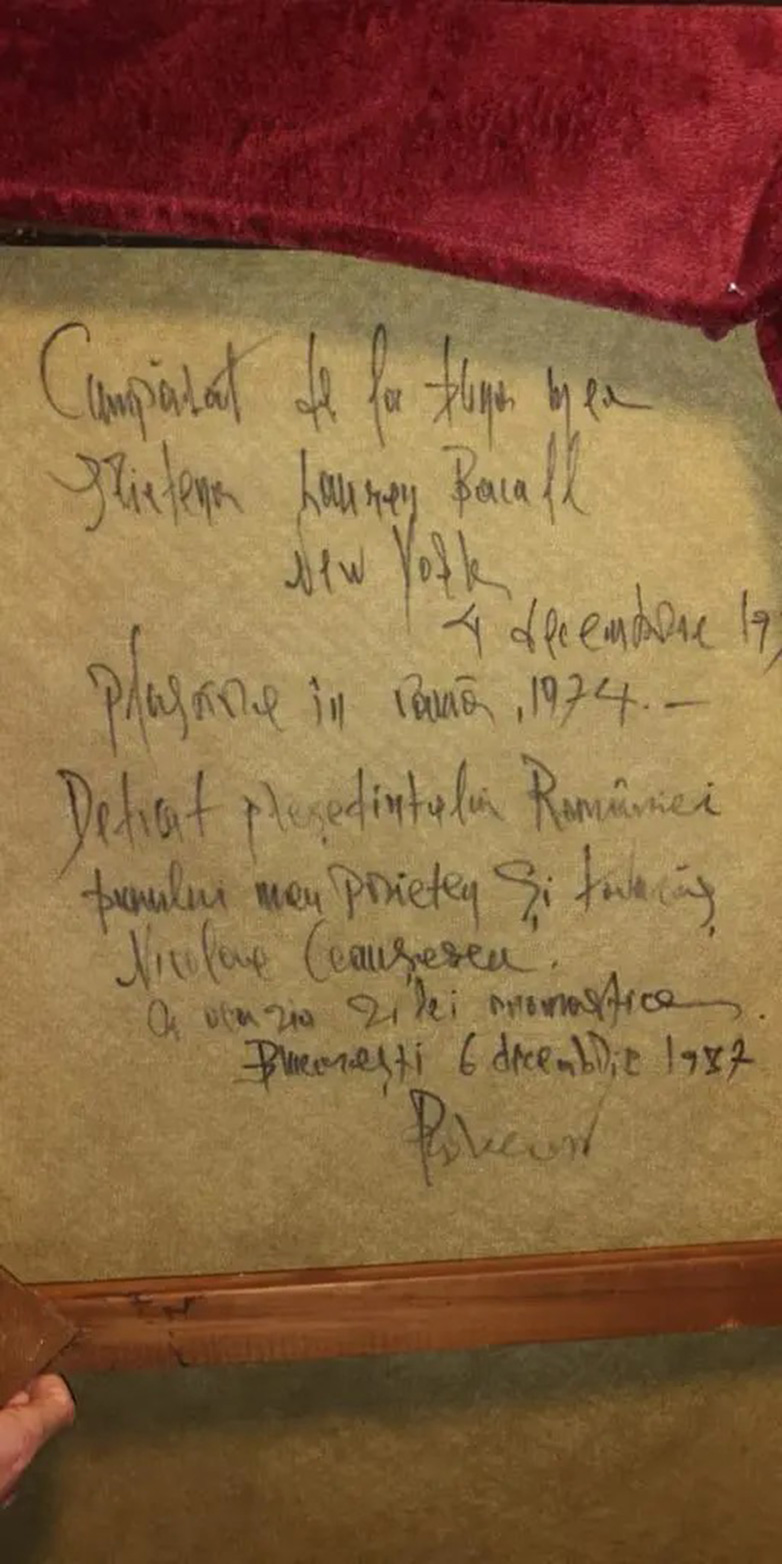 Cumpărat de la buna mea
prietena Lauren Bacall
New York
4 decembrie 19
în ramă, 1974. —
președintelui României
bunului meu prieten și
Nicolae Ceaușescu.
a zilei onomastice.
București 6 decembrie 1987